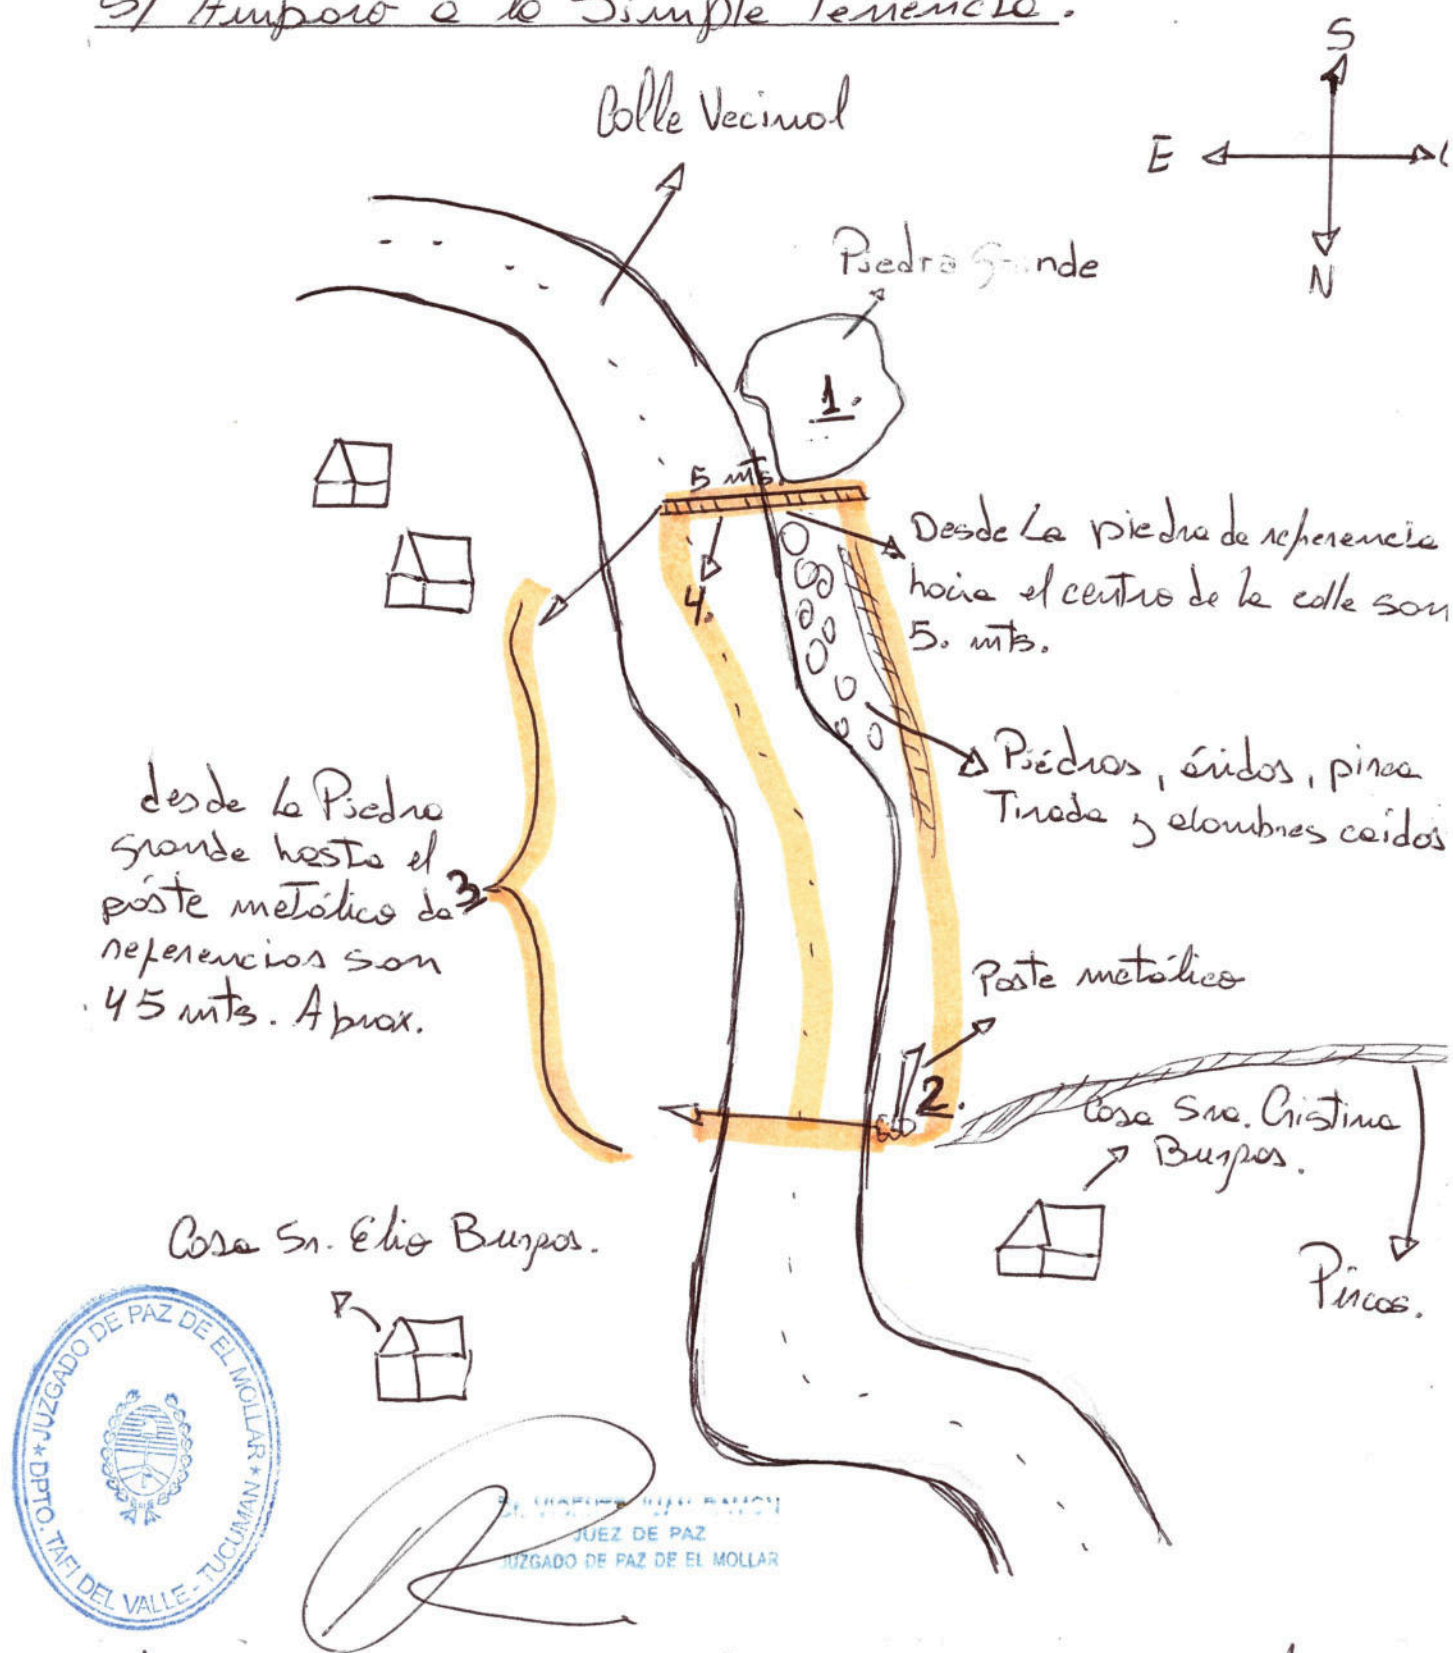 S/ Amparo a la Simple Tenencia.
S
E
N
Calle Vecinal
Piedra Grande
1.
5 mts.
4.
Desde La piedra de referencia
hacia el centro de la calle son
5. mts.
Piédras, áridos, pirca
Tirada y alambres caídos
desde La Piedra
grande hasta el
póste metálico de
referencias son
45 mts. Aprox.
3
Poste metálico
2.
Casa Sra. Cristina
Burgos.
Pircas.
Casa Sr. Elio Burgos.
JUZGADO DE PAZ DE EL MOLLAR * DPTO. TAFI DEL VALLE - TUCUMAN *
JUEZ DE PAZ
JUZGADO DE PAZ DE EL MOLLAR